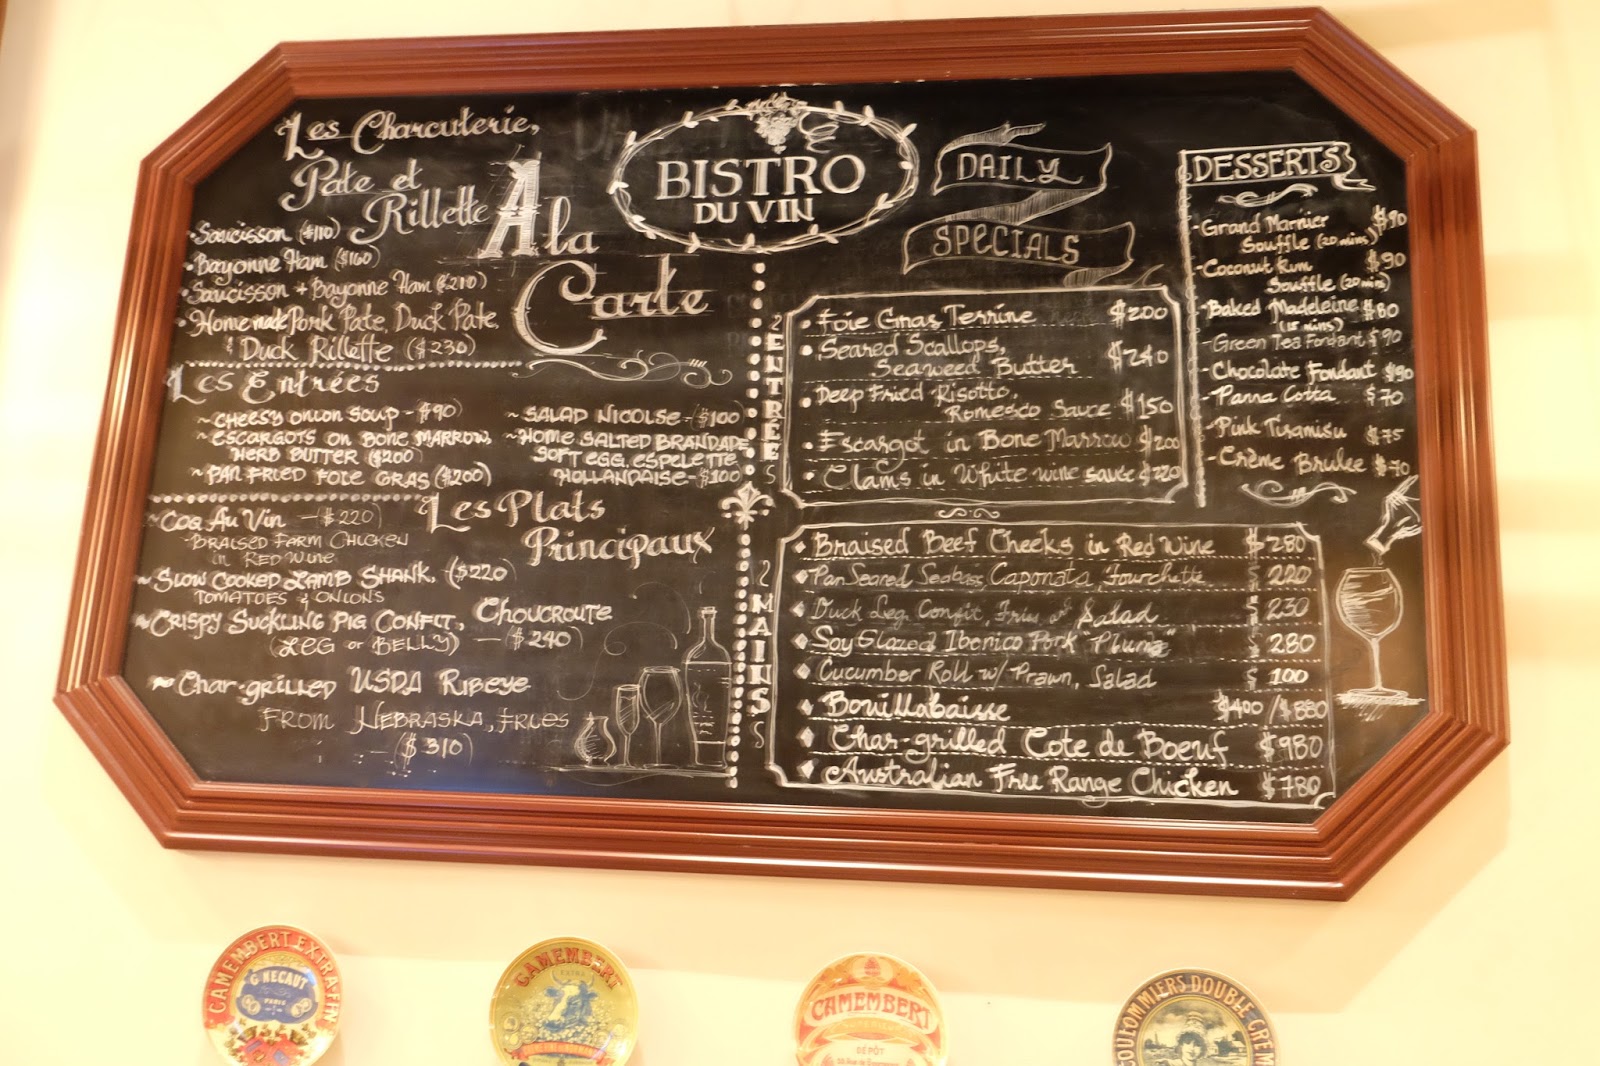 Les Charcuterie,
Pate et
Rillette
A la
Carte
• Saucisson ($110)
• Bayonne Ham ($160)
• Saucisson + Bayonne Ham ($210)
• Homemade Pork Pate, Duck Pate,
& Duck Rillette ($230)
Les Entrées
~ CHEESY ONION SOUP - $90)
~ ESCARGOTS ON BONE MARROW,
HERB BUTTER ($200)
~ PAN FRIED FOIE GRAS ($200)
~ SALAD NICOLSE - ($100
~ HOME SALTED BRANDADE
SOFT EGG, ESPELETTE
HOLLANDAISE - $100)
Les Plats
Principaux
~ COQ AU VIN - ($220)
- BRAISED FARM CHICKEN
in RED WINE
~ SLOW COOKED LAMB SHANK, ($220)
TOMATOES & ONIONS
~ CRISPY SUCKLING PIG CONFIT, CHOUCROUTE
(LEG or BELLY) - ($240)
~ Char-grilled USDA Ribeye
FROM NEBRASKA, FRIES
- ($310)
BISTRO
DU VIN
DAILY
SPECIALS
ENTREES
• Foie Gras Terrine $200
• Seared Scallops,
Seaweed Butter $240
• Deep Fried Risotto,
Romesco Sauce $150
• Escargot in Bone Marrow $200
• Clams in White wine sauce $220
MAINS
Braised Beef Cheeks in Red Wine $280
Pan Seared Seabass, Caponata, Fourchette $220
Duck Leg Confit, Fries & Salad $230
Soy Glazed Iberico Pork "Pluma" $280
Cucumber Roll w/ Prawn, Salad $100
Bouillabaisse $400 / $880
Char-grilled Cote de Boeuf $980
Australian Free Range Chicken $780
DESSERTS
- Grand Marnier $90
Souffle (20 mins)
- Coconut Rum $90
Souffle (20 min)
- Baked Madeleine $80
(15 mins)
- Green Tea Fondant $90
- Chocolate Fondant $90
- Panna Cotta $70
- Pink Tiramisu $75
- Crème Brulee $70
CAMEMBERT EXTRA-FIN
G. HECAUT
PARIS
CAMEMBERT
EXTRA
CAMEMBERT
DÉPÔT
COULOMMIERS DOUBLE CREME